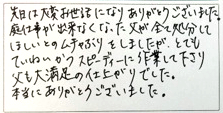 先日は大変お世話になりありがとうございました。
庭仕事が出来なくなった父が全て処分して
ほしいとのムチャぶりをしましたが、とても
ていねいかつスピーディーに作業して下さり
父も大満足の仕上がりでした。
本当にありがとうございました。